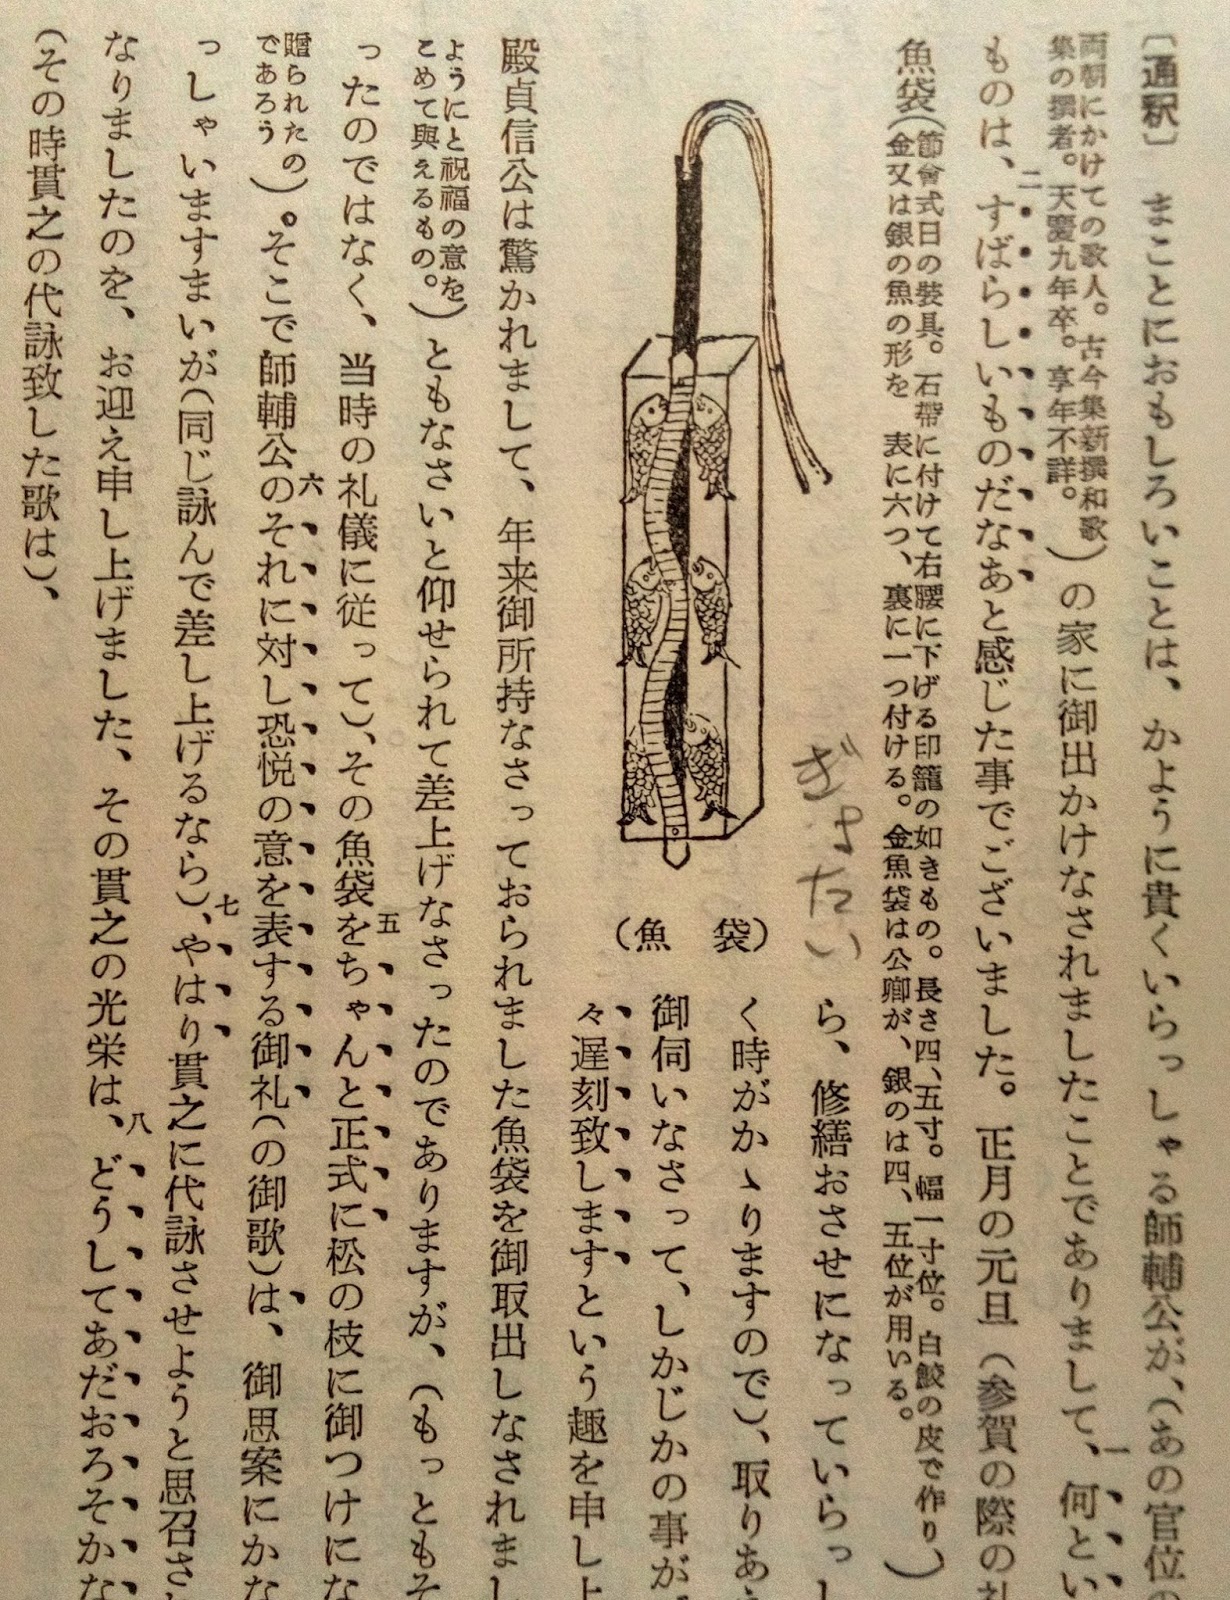 〔通釈〕 まことにおもしろいことは、かように貴くいらっしゃる師輔公が、(あの官位の
両朝にかけての歌人。古今集新撰和歌
集の撰者。天慶九年卒。享年不詳。
)の家に御出かけなされましたことでありまして、一何とい
ものは、二すばらしいものだなあと感じた事でございました。正月の元旦(参賀の際の礼
魚袋(
節會式日の裝具。石帶に付けて右腰に下げる印籠の如きもの。長さ四、五寸。幅一寸位。白鮫の皮で作り
金又は銀の魚の形を 表に六つ、裏に一つ付ける。金魚袋は公卿が、銀のは四、五位が用いる。
)
ぎょたい
(魚 袋)
ら、修繕おさせになっていらっし
く時がかゝりますので)、取りあえ
御伺いなさって、しかじかの事が
々遅刻致しますという趣を申し上
殿貞信公は驚かれまして、年来御所持なさっておられました魚袋を御取出しなされまし
ようにと祝福の意を
こめて與えるもの。
)ともなさいと仰せられて差上げなさったのでありますが、(もっともそ
ったのではなく、当時の礼儀に従って)、その魚袋を五ちゃんと正式に松の枝に御つけにな
贈られたの
であろう
)。そこで師輔公の六それに対し恐悦の意を表する御礼(の御歌)は、御思案にかな
っしゃいますまいが(同じ詠んで差し上げるなら)、七やはり貫之に代詠させようと思召さ
なりましたのを、お迎え申し上げました、その貫之の光栄は、八どうしてあだおろそかな
(その時貫之の代詠致した歌は)、